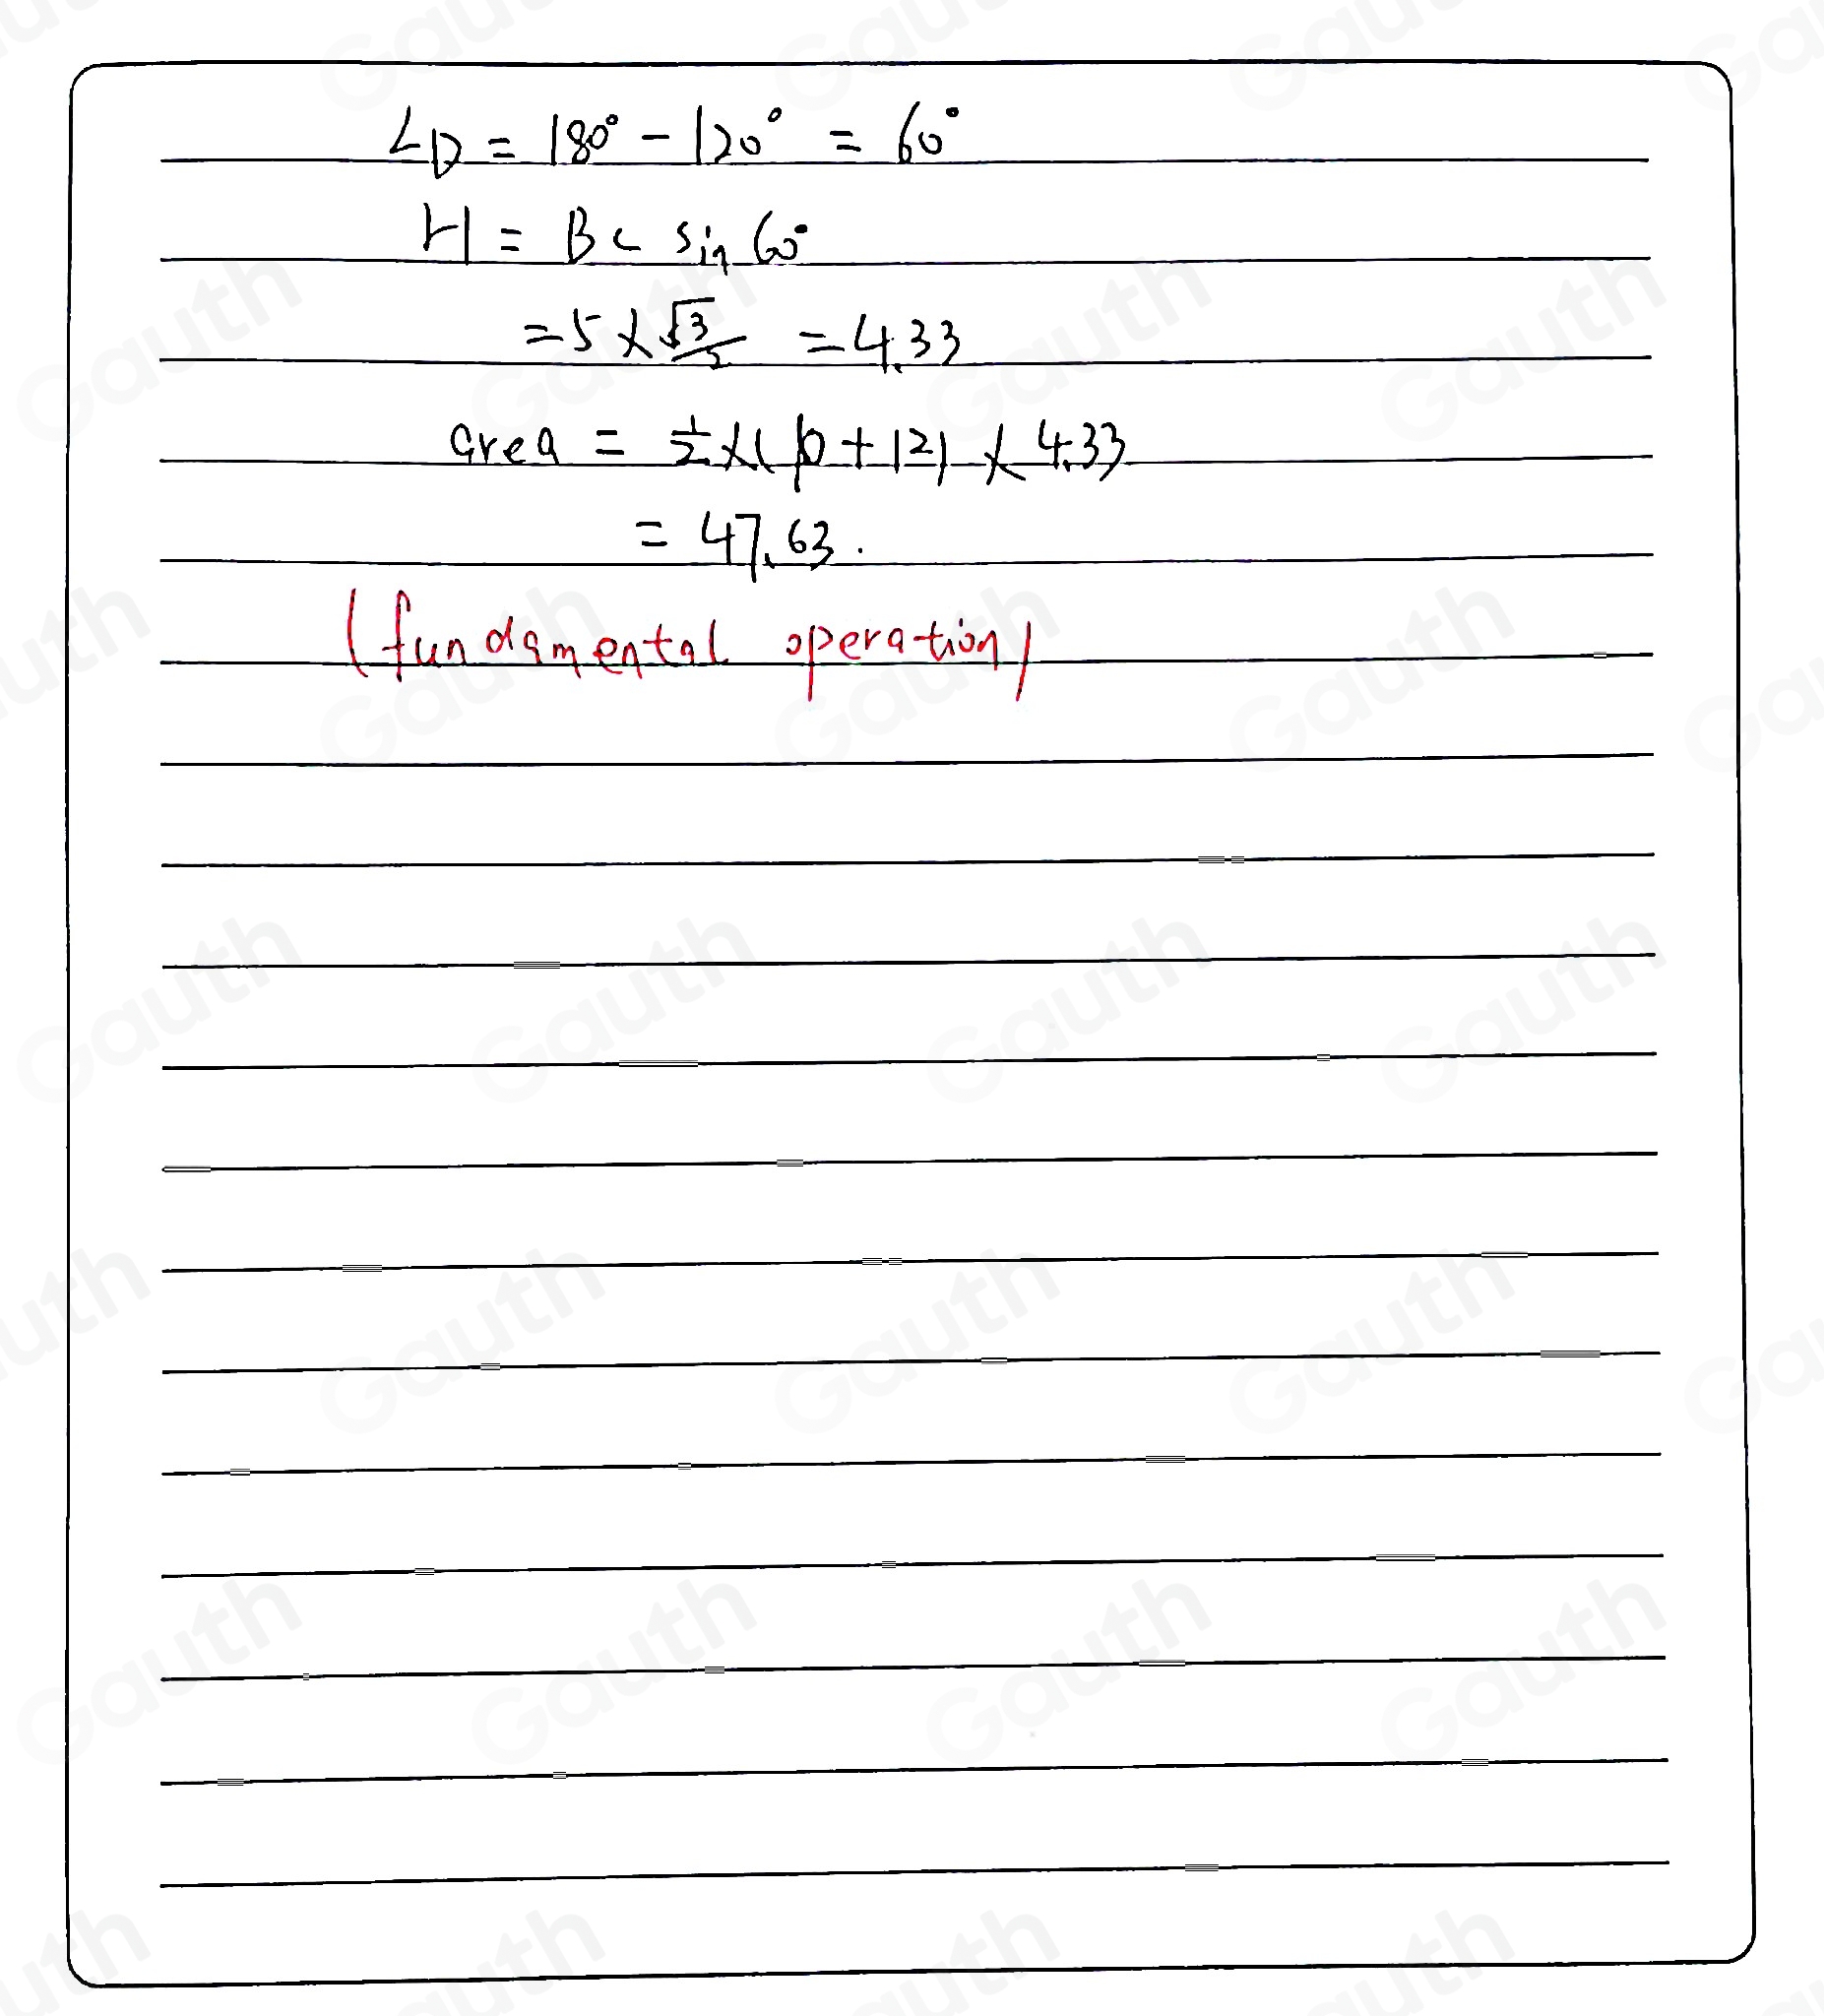 ∠D = 180° - 120° = 60°
H = BC sin 60°
= 5 × √3/2 = 4.33
area = 1/2 × (10 + 12) × 4.33
= 47.63.
(fundamental operation)
Gauth